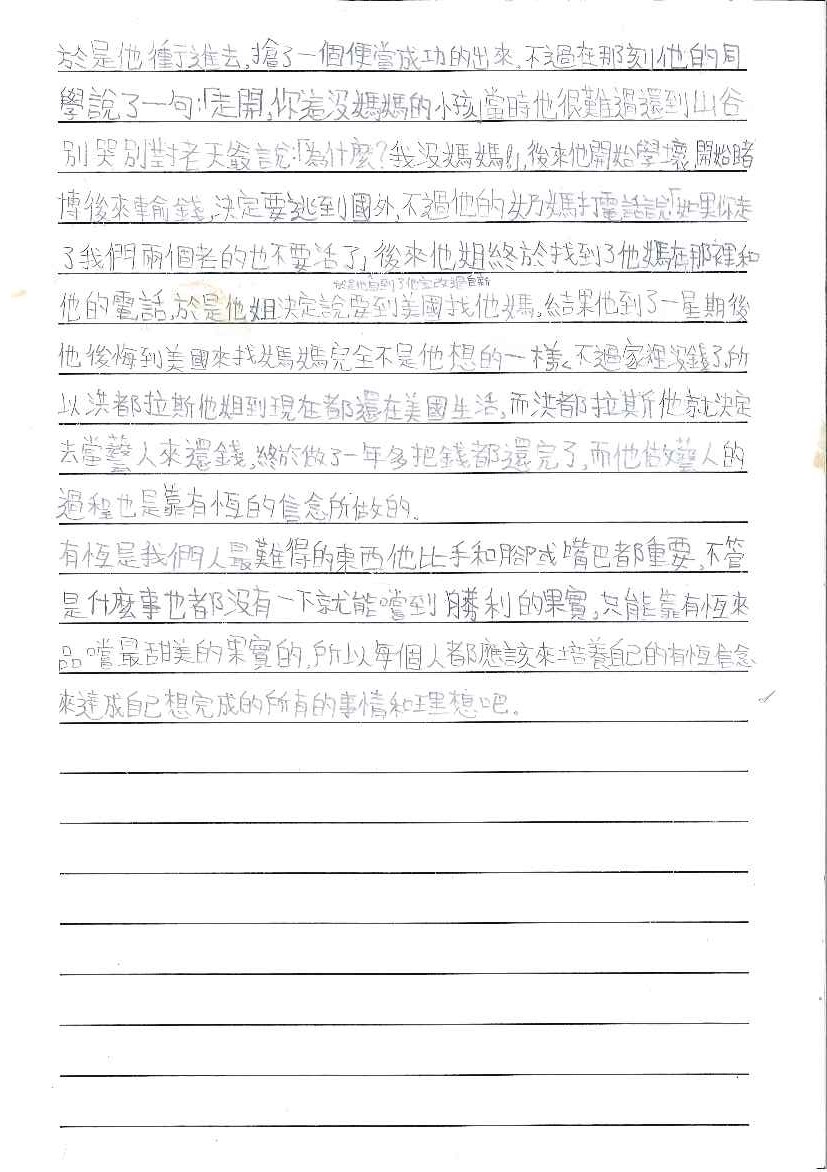 於是他衝進去,搶了一個便當成功的出來,不過在那刻他的同
學說了一句:「走開,你這沒媽媽的小孩」當時他很難過還到山谷
別哭別對老天爺說:「為什麼?我沒媽媽!」,後來他開始學壞,開始賭
博後來輸錢,決定要逃到國外,不過他的奶媽打電話說「如果你走
了我們兩個老的也不要活了」後來他姐終於找到了他媽在那裡和
於是他回到了他家改過自新
他的電話,於是他姐決定說要到美國找他媽,結果他到了一星期後
他後悔到美國來找媽媽完全不是他想的一樣,不過家裡沒錢了,所
以洪都拉斯他姐到現在都還在美國生活,而洪都拉斯他就決定
去當藝人來還錢,終於做了一年多把錢都還完了,而他做藝人的
過程也是靠有恆的信念所做的。
有恆是我們人最難得的東西他比手和腳或嘴巴都重要,不管
是什麼事也都沒有一下就能嚐到勝利的果實,只能靠有恆來
品嚐最甜美的果實的,所以每個人都應該來培養自己的有恆信念
來達成自己想完成的所有的事情和理想吧。